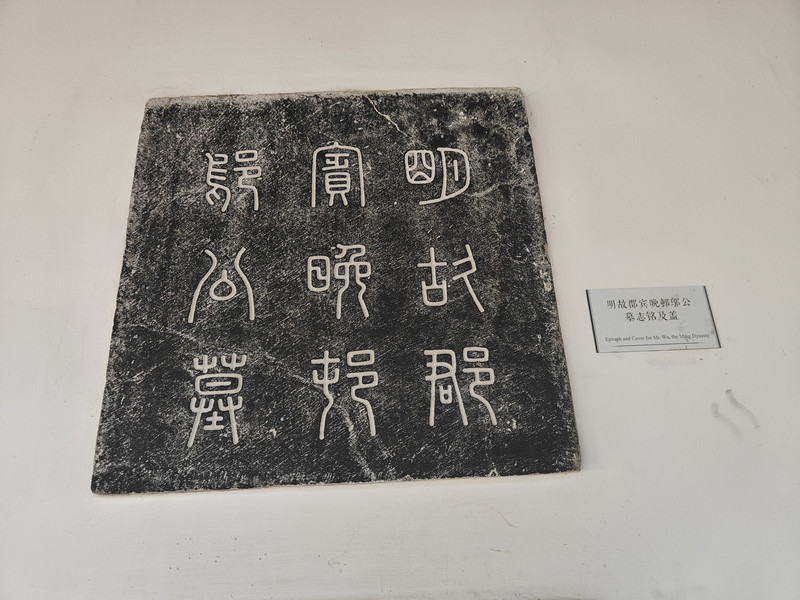 明故郡
賓晚邨
鄔公墓
明故郡宾晚邨鄔公
墓志铭及盖
Epitaph and Cover for Mr. Wu, the Ming Dynasty